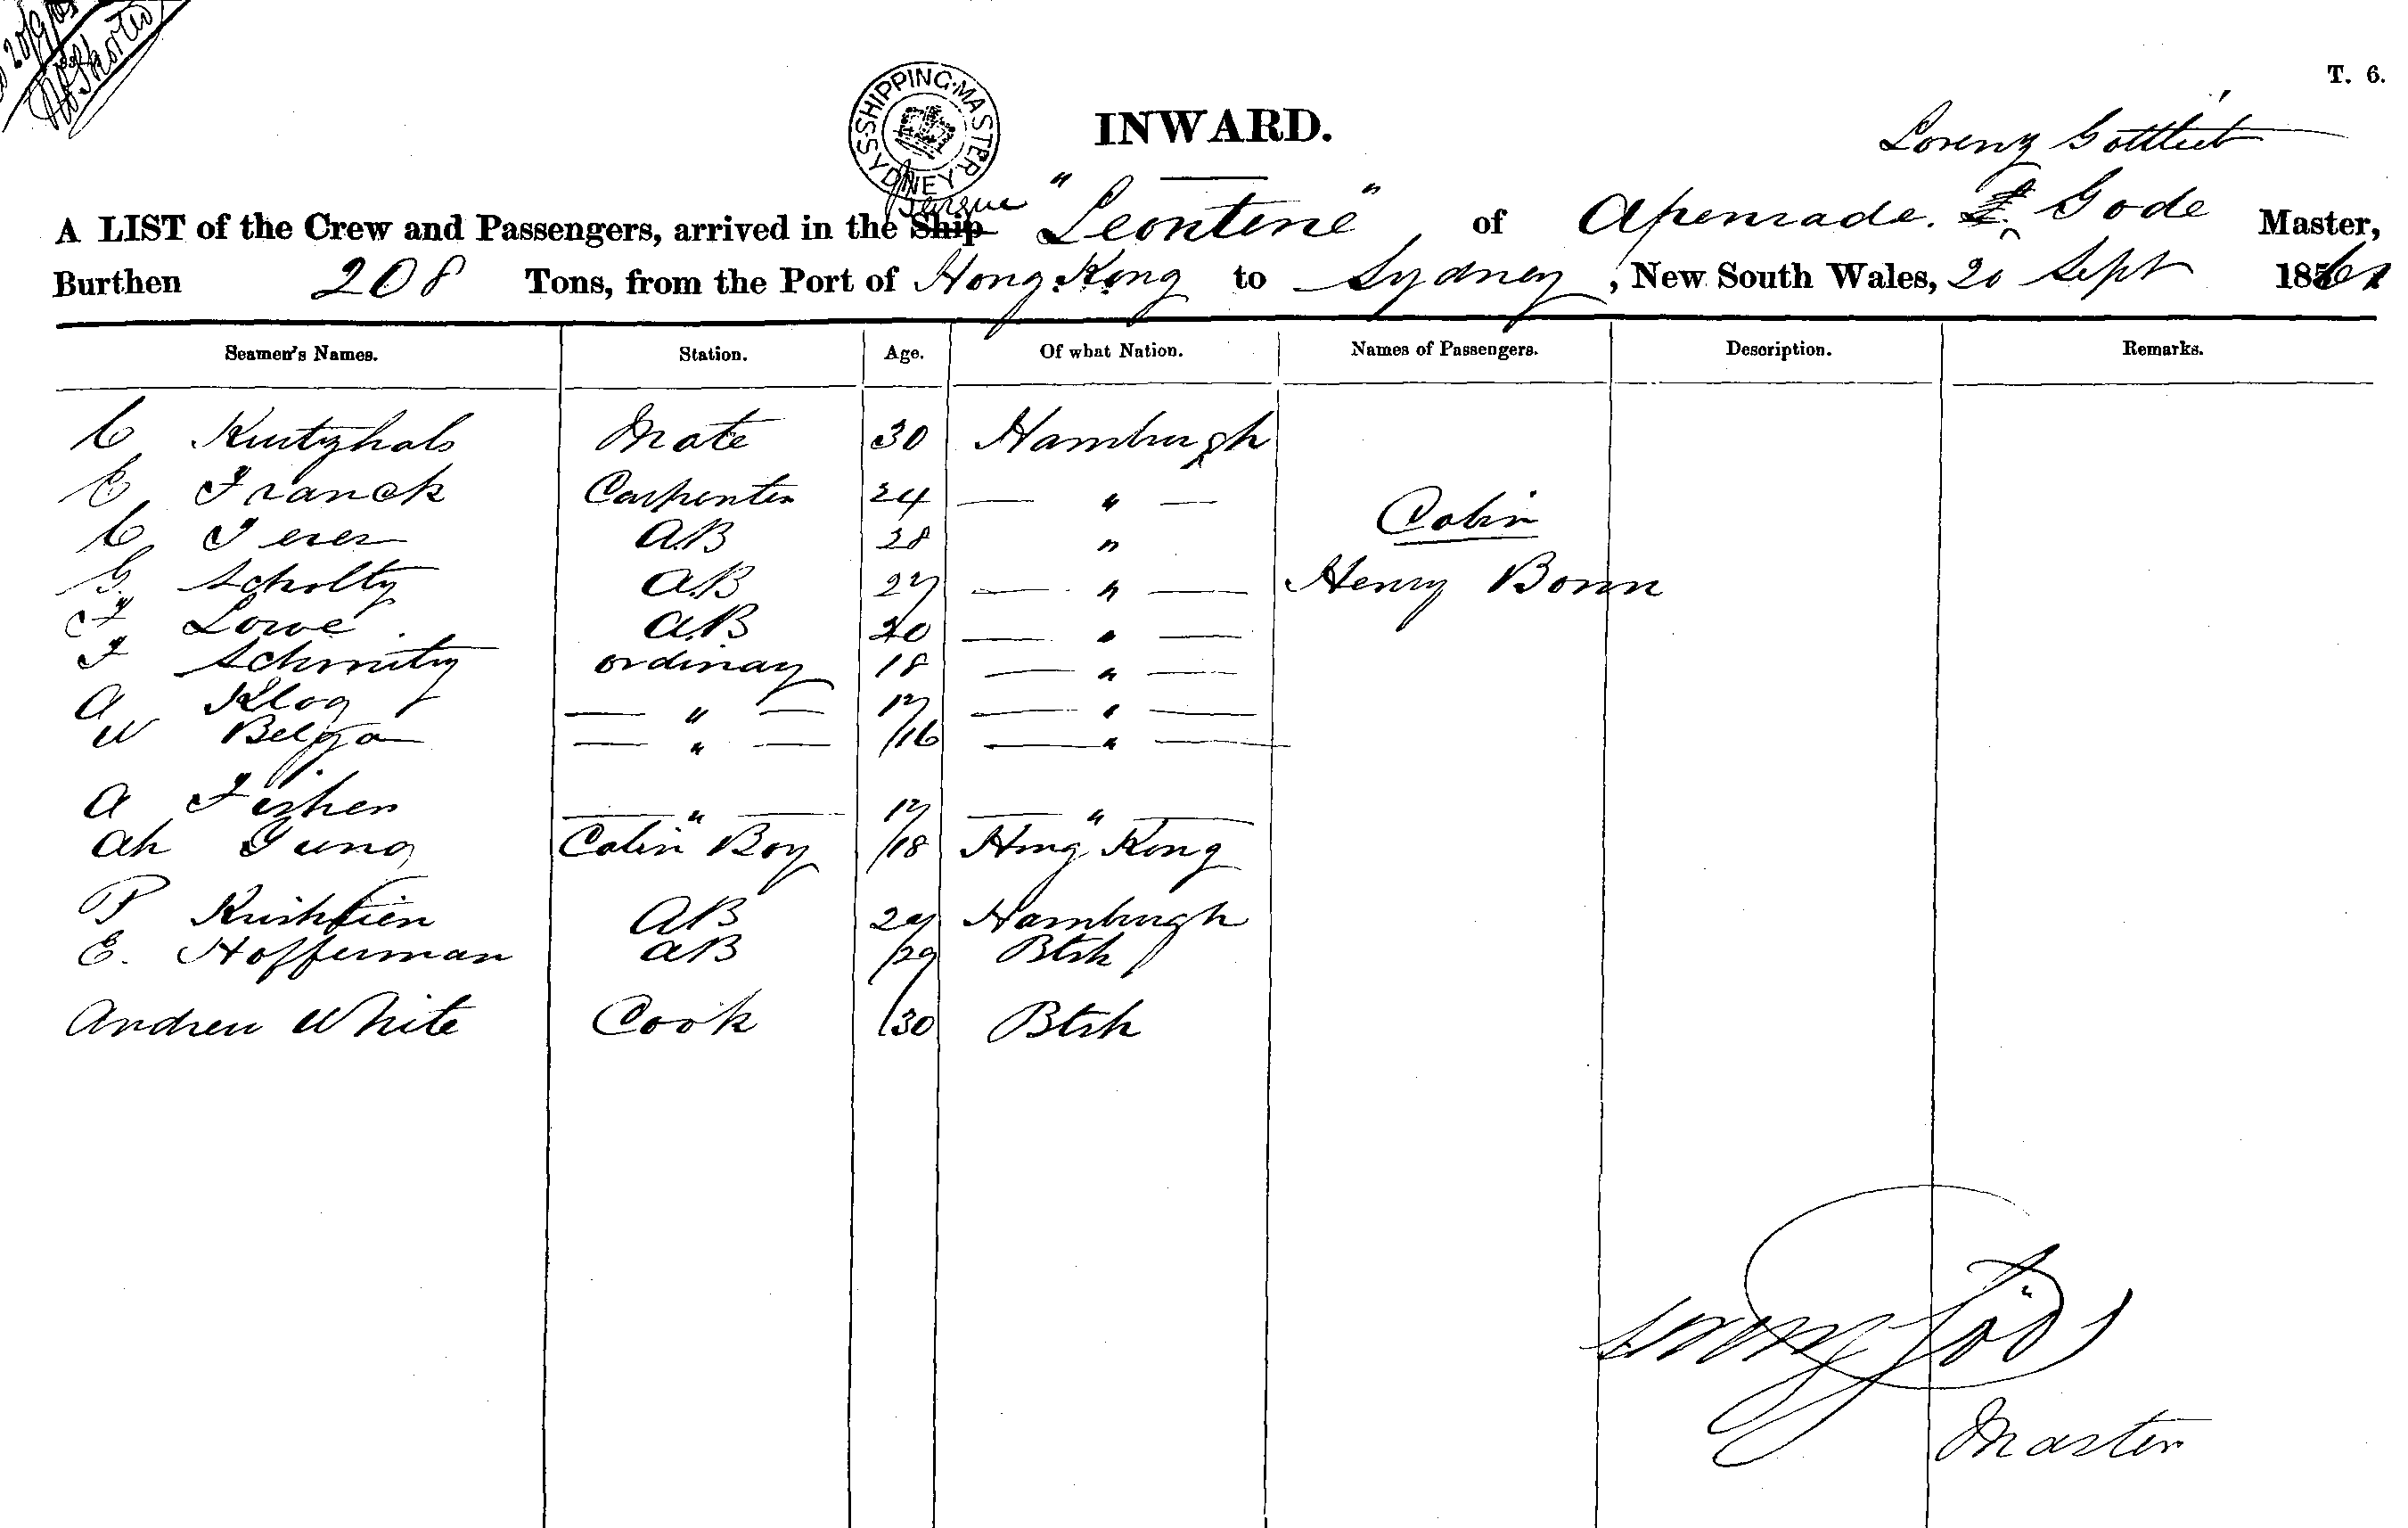 20/9/61
T. 6.
SHIPPING MASTER SYDNEY
INWARD.
Lorenz Gottlieb
Barque
A LIST of the Crew and Passengers, arrived in the Ship "Leontine" of Apenrade. L. Gode Master,
Burthen 208 Tons, from the Port of Hong Kong to Sydney, New South Wales, 20 Sept 1861
Seamen's Names. Station. Age. Of what Nation. Names of Passengers. Description. Remarks.
C Kurtzhals Mate 30 Hamburgh
E Franck Carpenter 24 — " —
Cabin
C AB 28 "
G. Scholtz AB 27 — " — Henry Bonn
F Lowe AB 20 — " —
F Schmitz ordinary 18 — " —
A Klog — " — 17 — " —
W Belga — " — 16 — " —
A Fisher — " — 17 — " —
Ah Gung Cabin Boy 18 Hong Kong
P AB 29 Hamburgh
E. Hofferman AB 29 Btsh
Andrew White Cook 30 Btsh
Lorenz Göde
Master